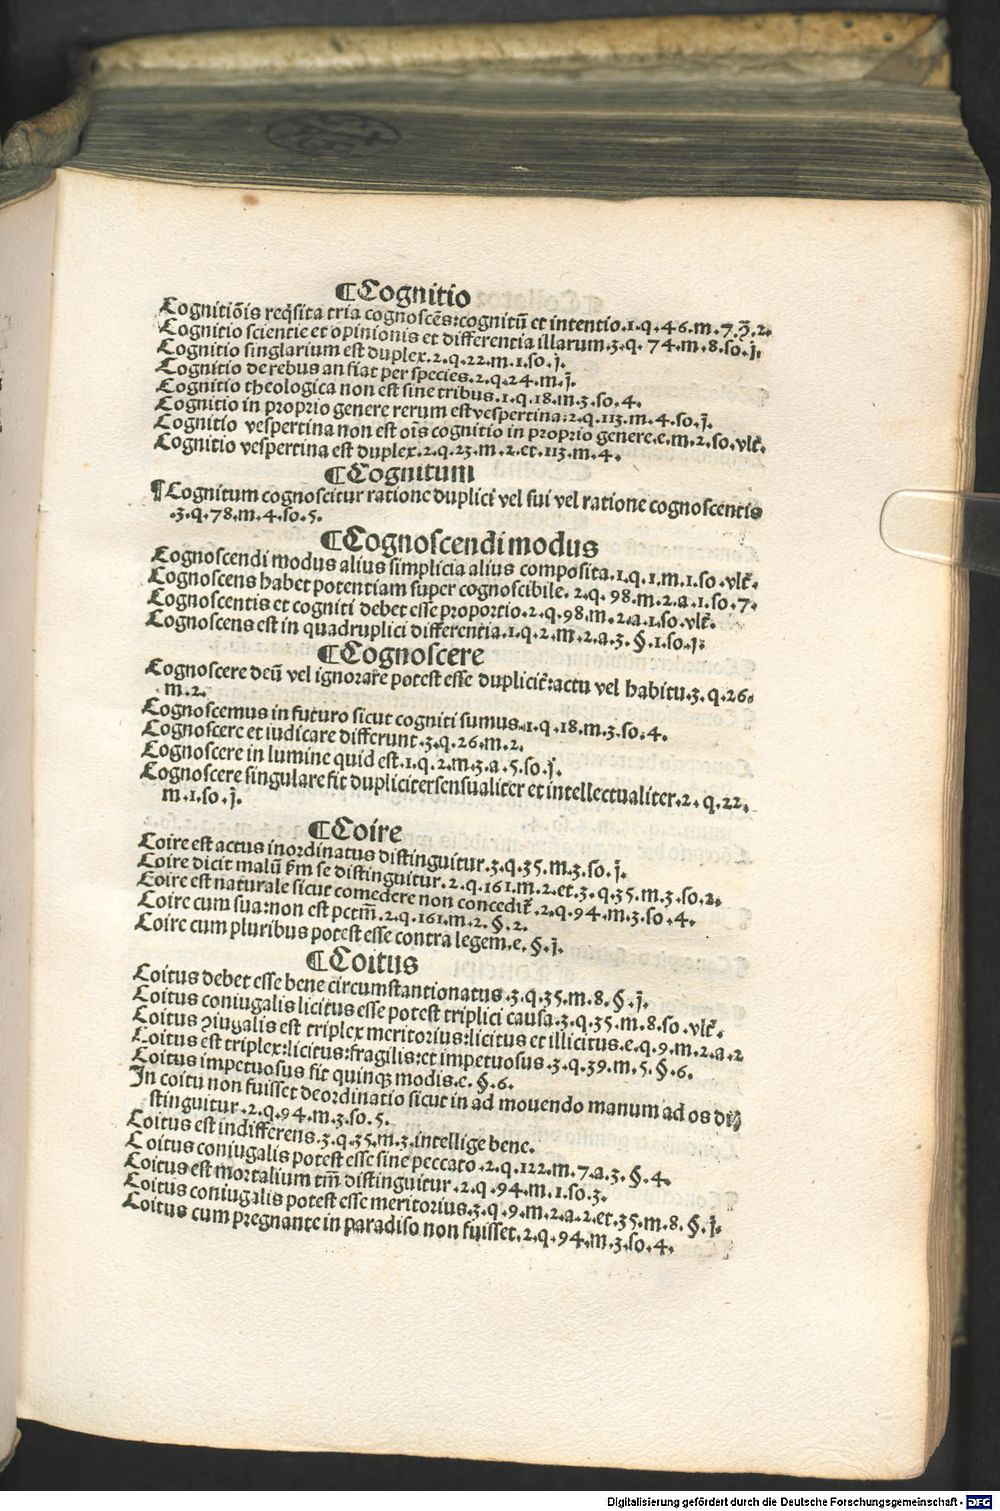 ¶Cognitio
Cognitiōis reqͥsita tria cognoscēs:cognitū et intentio.1.q.46.m.7.ʒ̄.2.
Cognitio scientie et opinionis et differentia illarum.3.q.74.m.8.so.j̄.
Cognitio singlarium est duplex.2.q.22.m.1.so.j̄.
Cognitio de rebus an fiat per species.2.q.24.m.j̄.
Cognitio theologica non est sine tribus.1.q.18.m.3.so.4.
Cognitio in proprio genere rerum est vespertina:2.q.113.m.4.so.j̄.
Cognitio vespertina non est oīs cognitio in proprio genere.e.m.2.so.vlt̄.
Cognitio vespertina est duplex.2.q.23.m.2.et.113.m.4.
¶Cognitum
¶Cognitum cognoscitur ratione duplici vel sui vel ratione cognoscentis
.3.q.78.m.4.so.5.
¶Cognoscendi modus
Cognoscendi modus alius simplicia alius composita.1.q.1.m.1.so.vlt̄.
Cognoscens habet potentiam super cognoscibile.2.q.98.m.2.a.1.so.7.
Cognoscentis et cogniti debet esse proportio.2.q.98.m.2.a.1.so.vlt̄.
Cognoscens est in quadruplici differentia.1.q.2.m.2.a.3.§.1.so.j.
¶Cognoscere
Cognoscere deū vel ignorare potest esse duplicit̄:actu vel habitu.3.q.26.
m.2.
Cognoscemus in futuro sicut cogniti sumus.1.q.18.m.3.so.4.
Cognoscere et iudicare differunt.3.q.26.m.2.
Cognoscere in lumine quid est.1.q.2.m.3.a.5.so.j̄.
Cognoscere singulare fit dupliciter sensualiter et intellectualiter.2.q.22.
m.1.so.j̄.
¶Coire
Coire est actus inordinatus distinguitur.3.q.35.m.3.so.j̄.
Coire dicit malū ẜm se distinguitur.2.q.161.m.2.et.3.q.35.m.3.so.2.
Coire est naturale sicut comedere non concedit̄.2.q.94.m.3.so.4.
Coire cum sua:non est pctm̄.2.q.161.m.2.§.2.
Coire cum pluribus potest esse contra legem.e.§.j̄.
¶Coitus
Coitus debet esse bene circumstantionatus.3.q.35.m.8.§.j̄.
Coitus coniugalis licitus esse potest triplici causa.3.q.35.m.8.so.vlt̄.
Coitus ꝯiugalis est triplex meritorius:licitus et illicitus.e.q.9.m.2.a.2
Coitus est triplex:licitus:fragilis:et impetuosus.3.q.39.m.5.§.6.
Coitus impetuosus fit quinqꝫ modis.e.§.6.
In coitu non fuisset deordinatio sicut in ad mouendo manum ad os di⸗
stinguitur.2.q.94.m.3.so.5.
Coitus est indifferens.3.q.35.m.3.intellige bene.
Coitus coniugalis potest esse sine peccato.2.q.122.m.7.a.3.§.4.
Coitus est mortalium tm̄ distinguitur.2.q.94.m.1.so.3.
Coitus coniugalis potest esse meritorius.3.q.9.m.2.a.2.et.35.m.8.§.j̄.
Coitus cum pregnante in paradiso non fuisset.2.q.94.m.3.so.4.
Digitalisierung gefördert durch die Deutsche Forschungsgemeinschaft - DFG